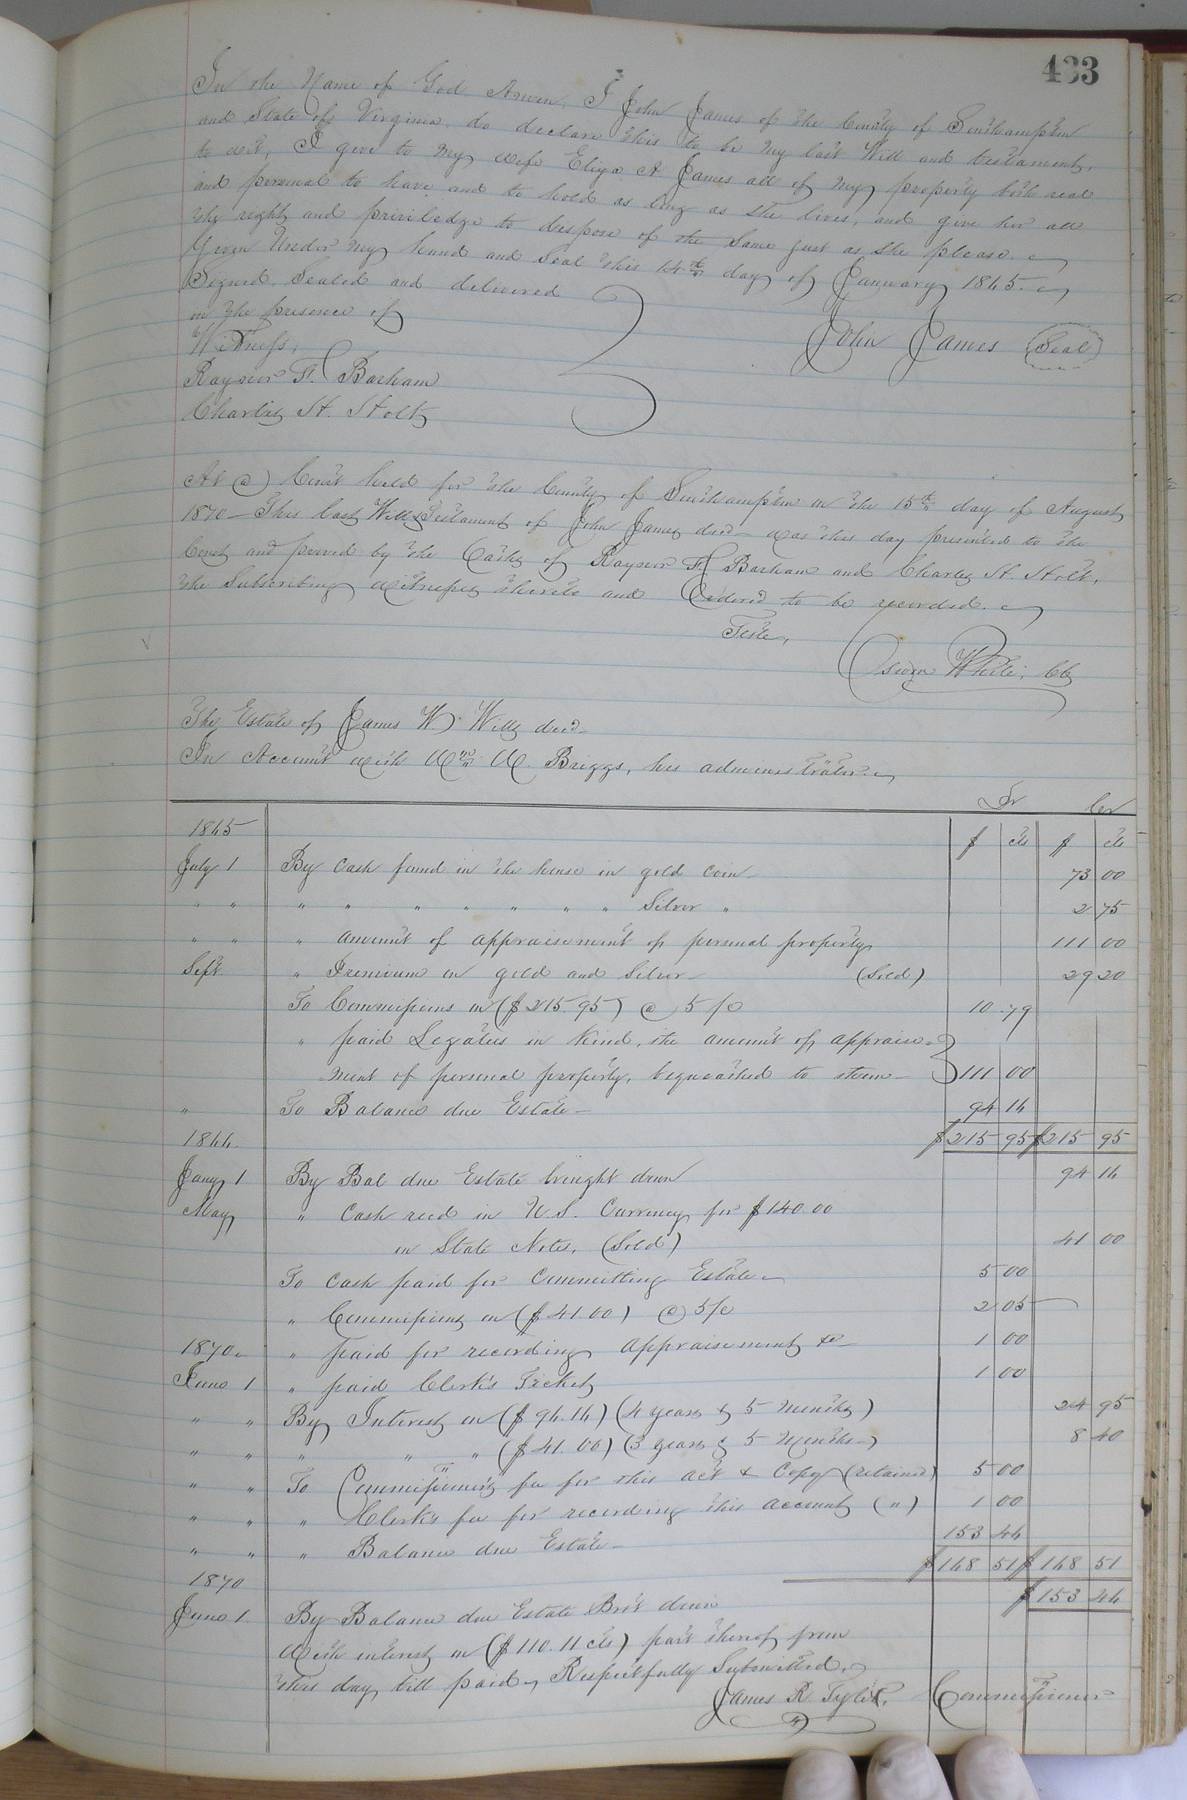 433
In the Name of God Amen, I John James of the County of Southampton
and State of Virginia, do declare this to be my last Will and testament,
to wit, I give to my wife Eliza A James all of my property both real
and personal to have and to hold as long as she lives, and give her all
the right and priviledge to dispose of the same just as she please.
Given Under my hand and Seal this 14th day of January 1845.
Signed, Sealed and delivered
in the presence of
John James (Seal)
Witness,
Rayser F. Barham
Charles H. Stolts
At a Court held for the County of Southampton on the 15th day of August
1870 - This last Will & Testament of John James decd was this day presented to the
Court and proved by the Oaths of Rayser F. Barham and Charles H. Stolts,
the Subscribing witnesses thereto and Ordered to be recorded.
Teste,
White, Clk
The Estate of James W. Wills decd
In Account with Wm W. Briggs, his administrator
Dr Cr
1865 $ cts $ cts
July 1 By Cash found in the house in gold coin 73 00
" " " " " " " " " Silver " 2 75
" " " amount of appraisement of personal property 111 00
Sept. " Premium on gold and Silver (Sold) 29 20
To Commissions on ($215.95) @ 5 p/c 10.79
" paid Legatees in kind, the amount of appraise-
ment of personal property, bequeathed to them 111 00
" To Balance due Estate 94 16
$215 95 $215 95
1866
Jany 1 By Bal due Estate brought down 94 16
May " Cash recd in U.S. Currency for $140.00
in State Notes, (Sold) 41 00
To Cash paid for Committing Estate 5 00
" Commissions on ($41.00) @ 5 p/c 2 05
1870 " paid for recording Appraisement &c 1 00
June 1 " paid Clerk's Tickets 1 00
" " By Interest on ($94.16) (4 years & 5 months) 24 95
" " " " " ($41.00) (3 years & 5 months) 8 40
" " To Commissioner's fee for this act & Copy (retained) 5 00
" " " Clerk's fee for recording this account (") 1 00
" " " Balance due Estate 153 46
$168 51 $168 51
1870 $153 46
June 1 By Balance due Estate Brot down
With interest on ($110.11 cts) part thereof from
this day till paid, Respectfully Submitted,
James R Tyler, Commissioner